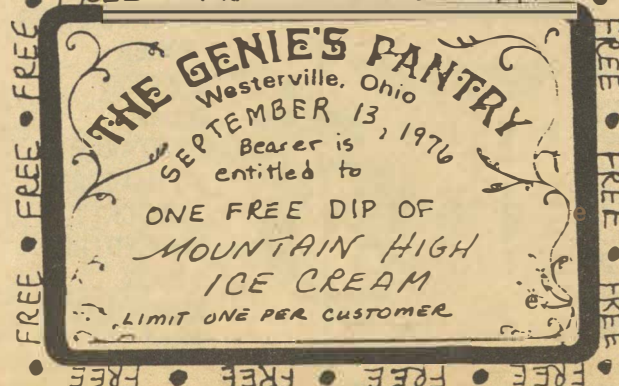 THE GENIE'S PANTRY
Westerville, Ohio
SEPTEMBER 13, 1976
Bearer is
entitled to
ONE FREE DIP OF
MOUNTAIN HIGH
ICE CREAM
LIMIT ONE PER CUSTOMER
FREE • FREE • FREE • FREE
FREE • FREE • FREE • FREE
FREE • FREE • FREE • FREE